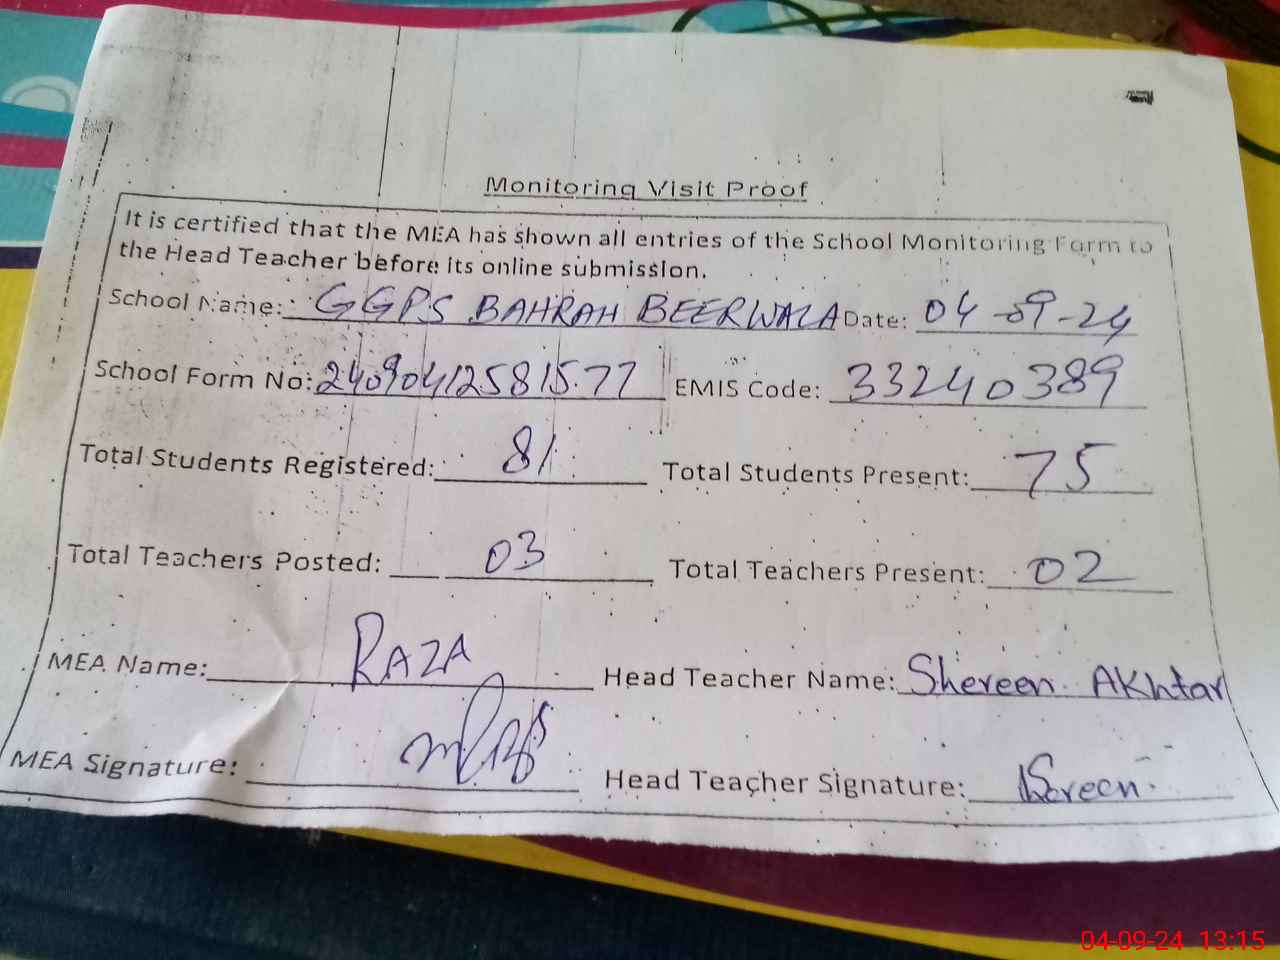 Monitoring Visit Proof
It is certified that the MEA has shown all entries of the School Monitoring Form to
the Head Teacher before its online submission.
School Name: GGPS BAHRAH BEERWALA Date: 04-09-24
School Form No: 240904125815.77 EMIS Code: 33240389
Total Students Registered: 81 Total Students Present: 75
Total Teachers Posted: 03 Total Teachers Present: 02
MEA Name: RAZA Head Teacher Name: Shereen Akhtar
MEA Signature: Head Teacher Signature:
04-09-24 13:15